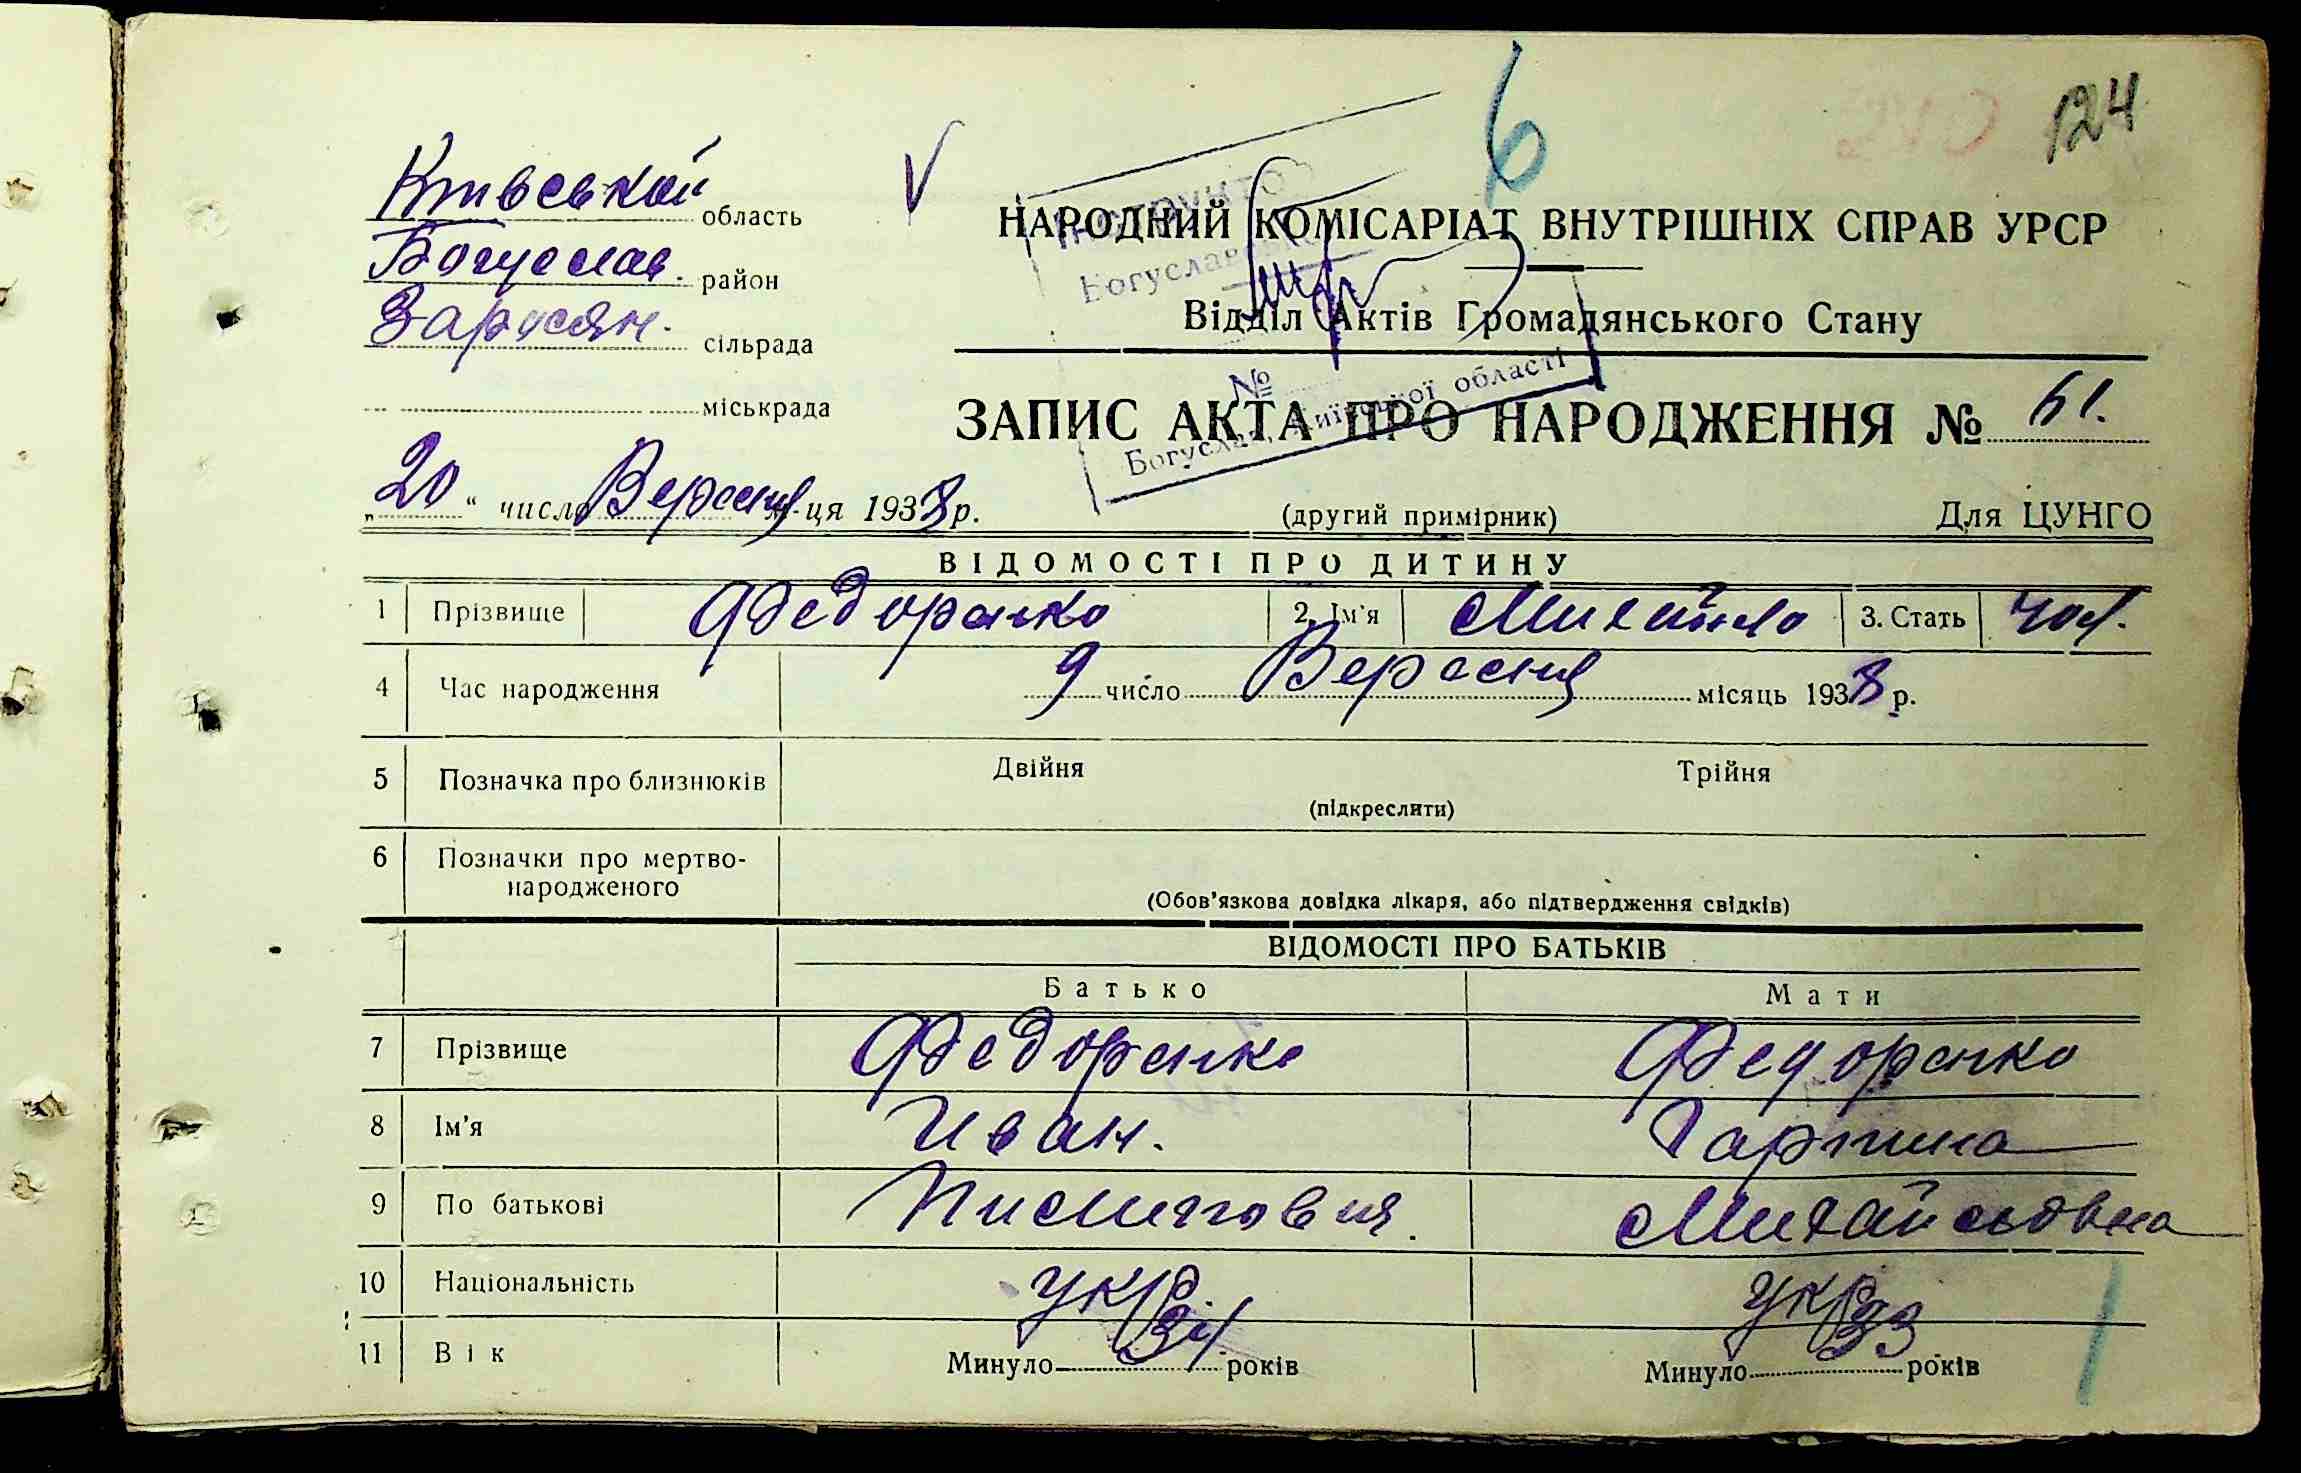 124
6
Київській область
НАРОДНИЙ КОМІСАРІАТ ВНУТРІШНІХ СПРАВ УРСР
Богуслав. район
Відділ Актів Громадянського Стану
Зарусян. сільрада
міськрада
№
Богуслав, Київської області
ЗАПИС АКТА ПРО НАРОДЖЕННЯ № 61.
„20“ число Вересня м-ця 1938 р.
(другий примірник) Для ЦУНГО
ВІДОМОСТІ ПРО ДИТИНУ
1 Прізвище Федоренко 2. Ім'я Михайло 3. Стать чол.
4 Час народження 9 число Вересня місяць 1938 р.
5 Позначка про близнюків Двійня Трійня
(підкреслити)
6 Позначки про мертво-
народженого
(Обов'язкова довідка лікаря, або підтвердження свідків)
ВІДОМОСТІ ПРО БАТЬКІВ
Батько Мати
7 Прізвище Федоренко Федоренко
8 Ім'я Иван. Гарпина
9 По батькові Михайловна
10 Національність укр укр
11 Вік Минуло 34 років Минуло 33 років